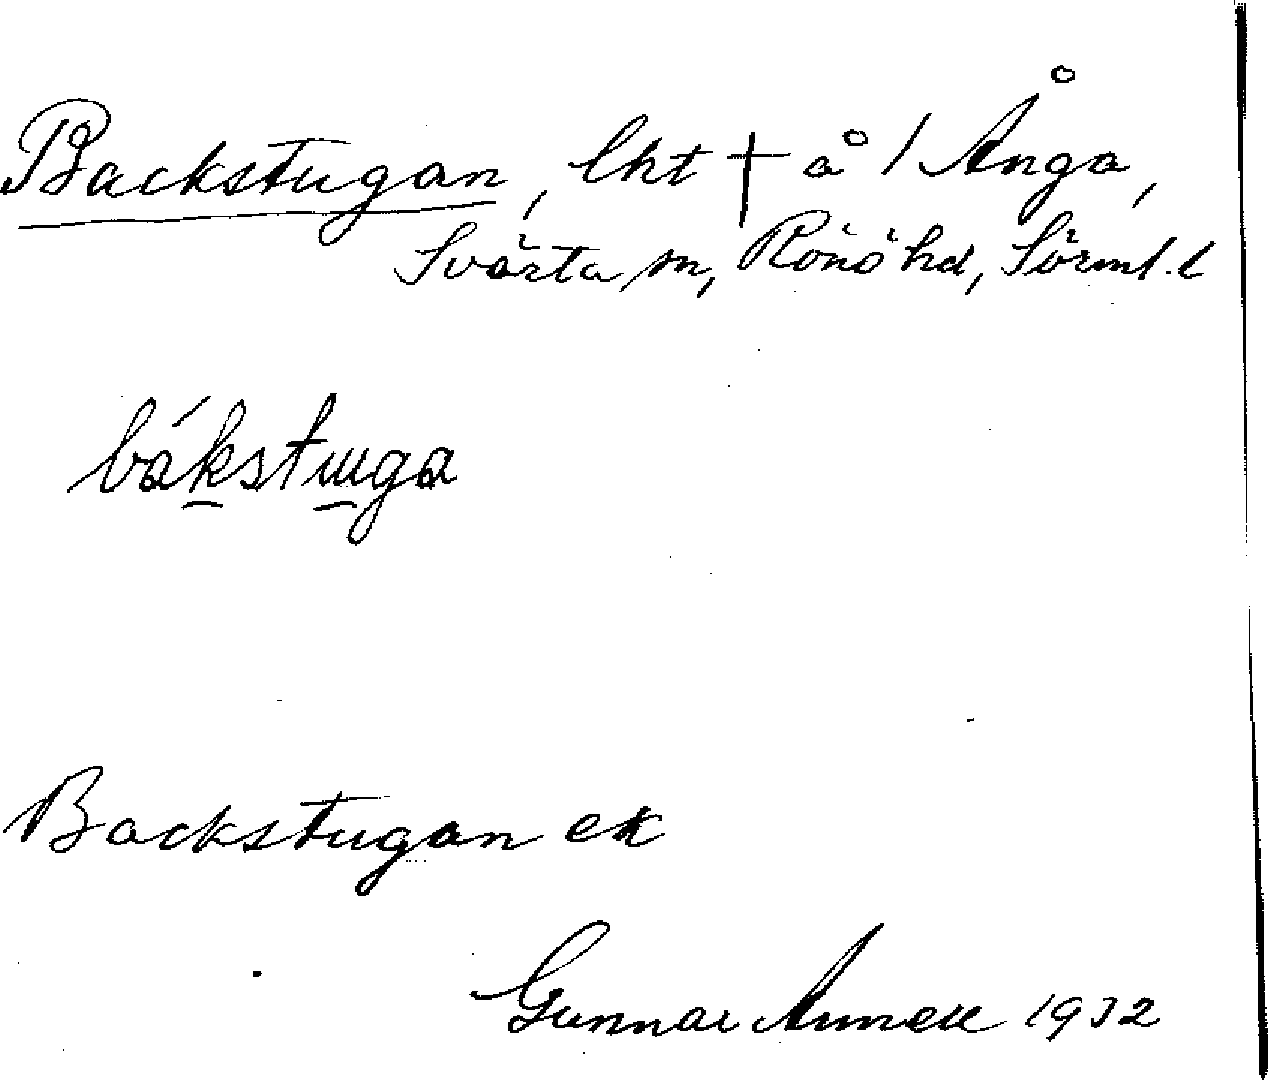 Backstugan, lht † å 1 Ånga,
Svärta sn, Rönö hd, Sörml. l
bákstuga
Backstugan ek
Gunnar 1932